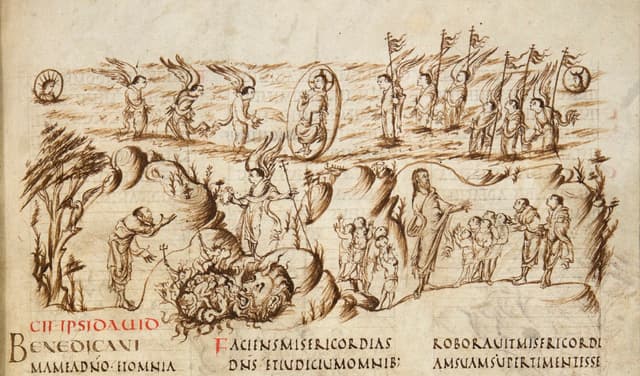 CII IPSI DAUID
BENEDIC ANI
MA MEA DÑO · ET OMNIA
FACIENS MISERICORDIAS
DÑS ET IUDICIUM OMNIB;
ROBORAUIT MISERICORDI
AM SUAM SUPER TIMENTES SE